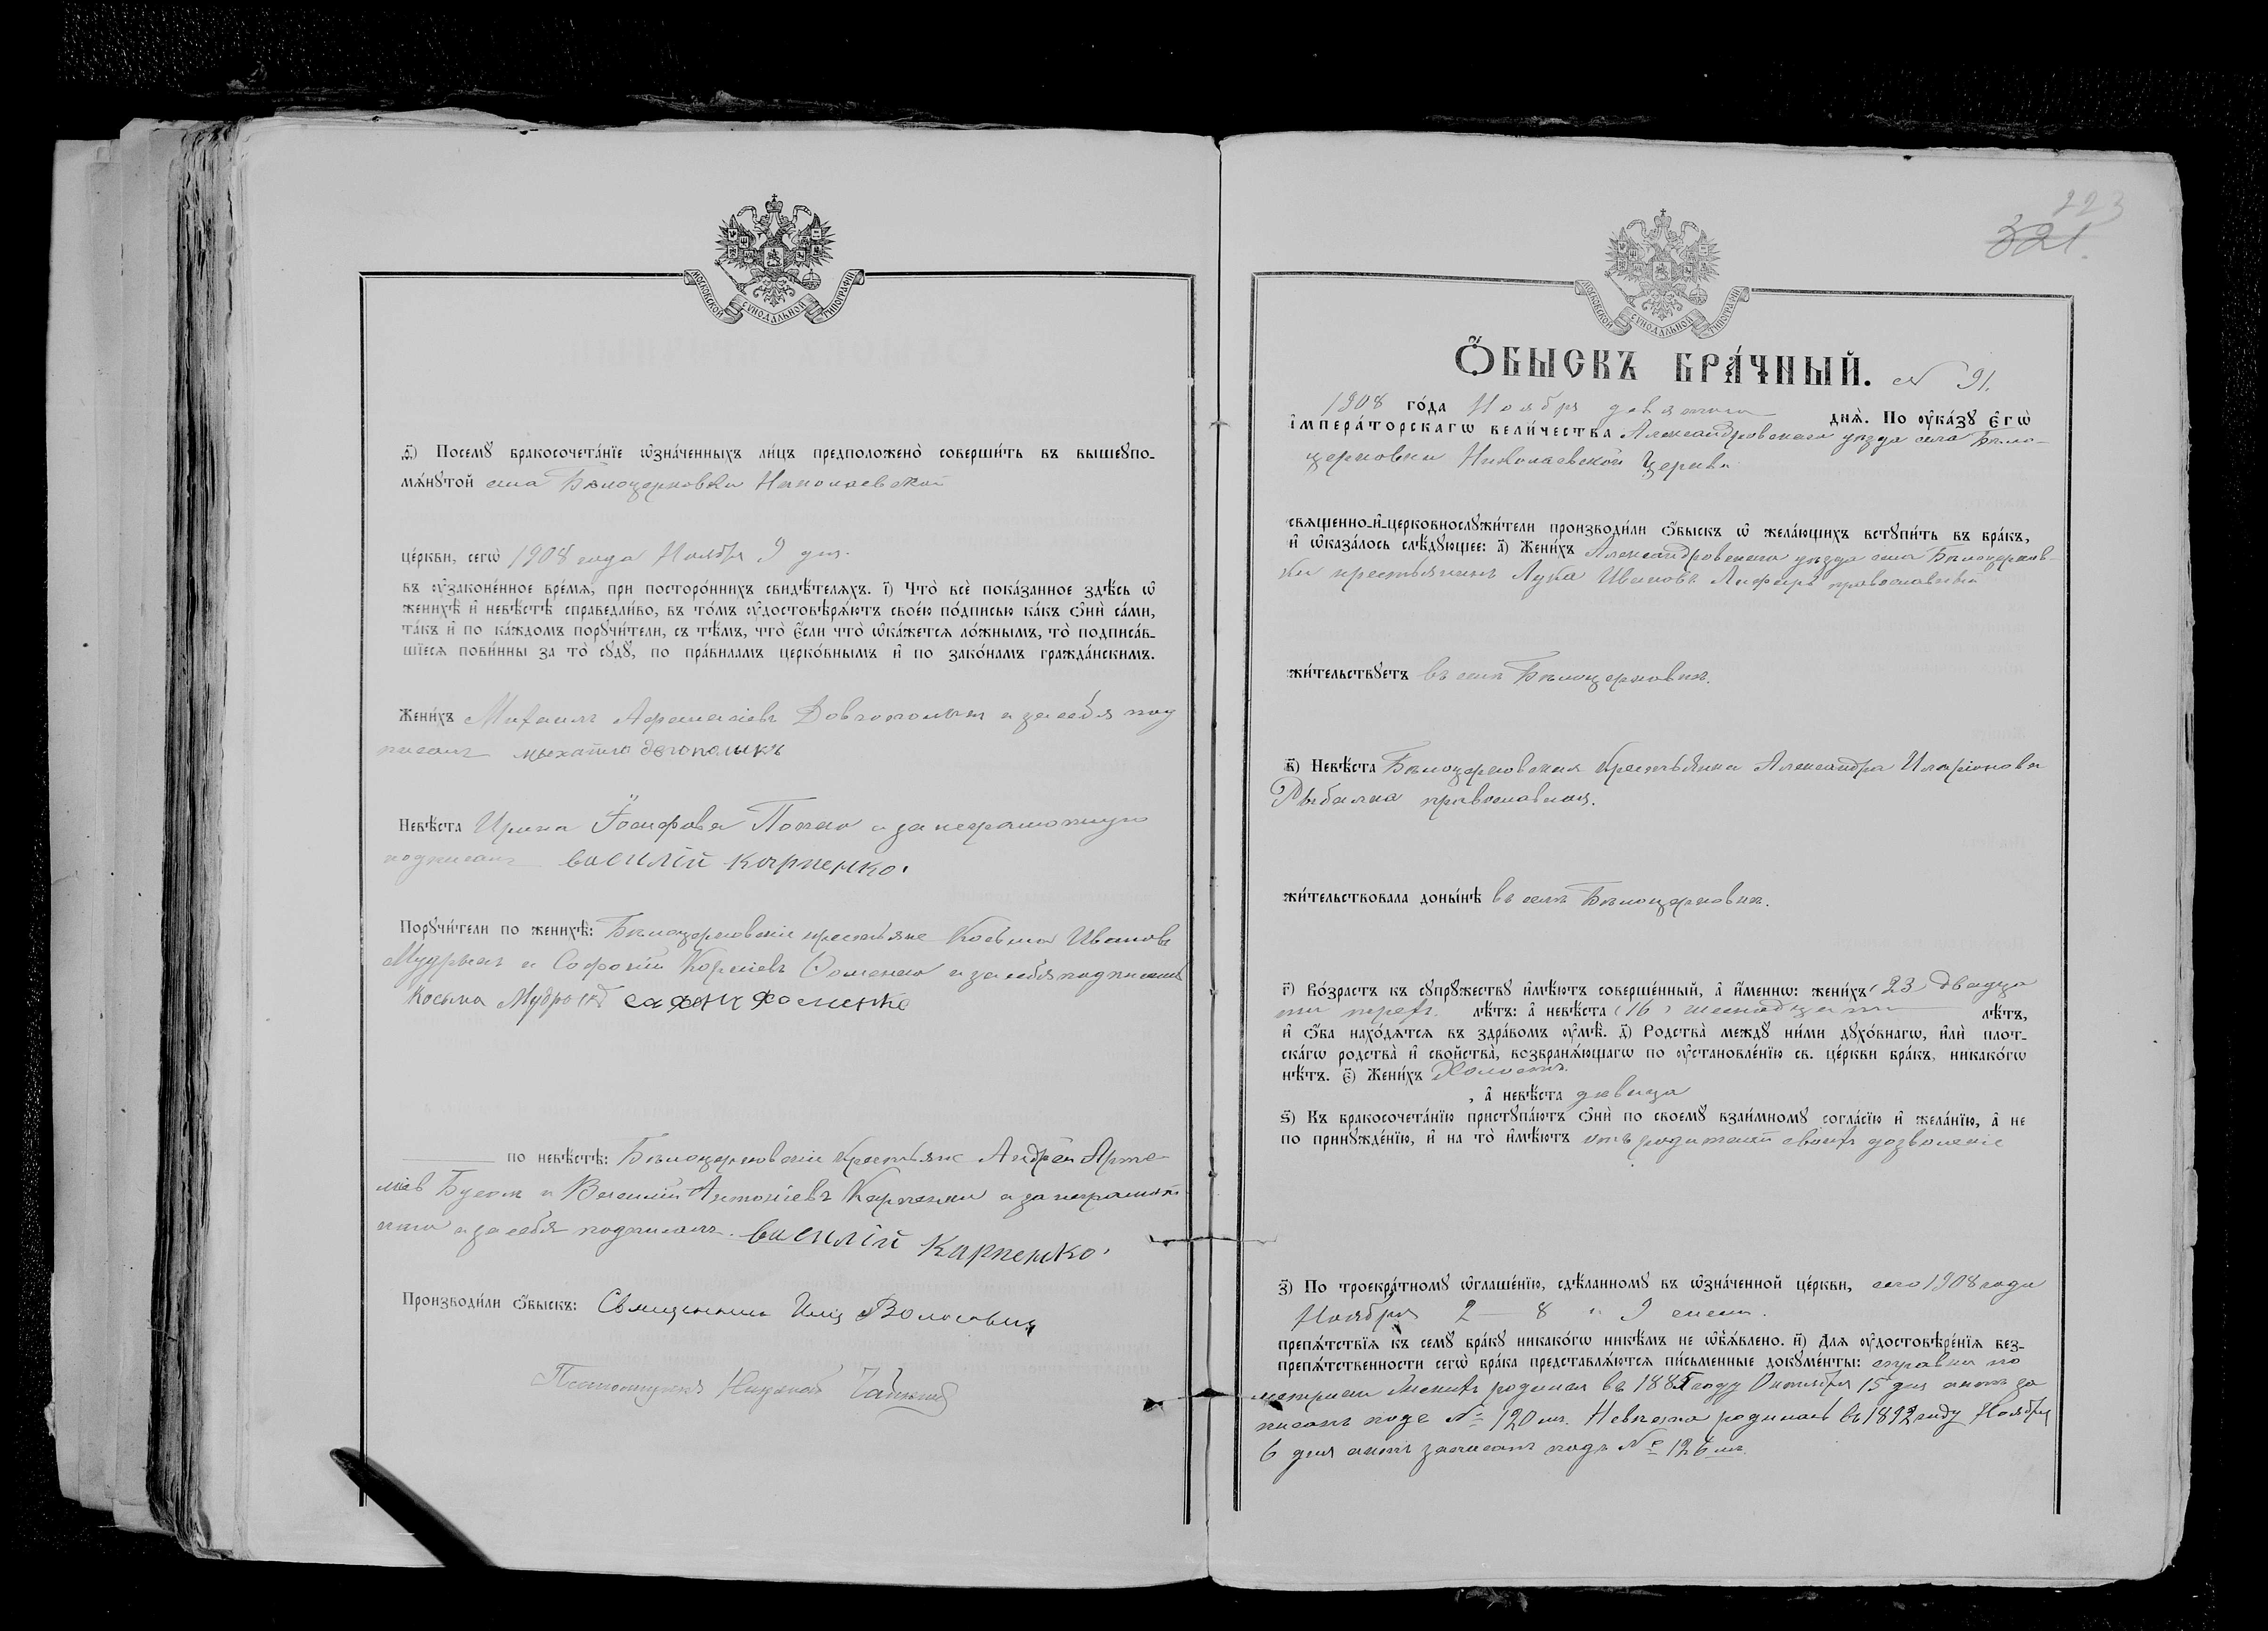 МОСКОВСКОЙ СѴНОДАЛЬНОЙ ТИПОГРАФІИ
Посемꙋ̀ бракосочета́нїе ѡ҆зна́ченныхъ ли́цъ предположено̀ соверши́ть въ вышеꙋпо-
мѧ́нꙋтой села Бѣлоцерковки Николаевской
це́ркви, сегѡ̀ 1908 года Ноября 9 дня.
въ ᲂу҆зако́ненное вре́мѧ, при посторо́ннихъ свидѣ́телѧхъ. і҃) Что̀ всѐ пока́занное здѣ́сь ѡ҆
женихѣ̀ и҆ невѣ́стѣ справедли́во, въ то́мъ ᲂу҆достовѣрѧ́ютъ свое́ю по́дписью ка́къ ѻ҆нѝ са́ми,
та́къ и҆ по ка́ждомъ порꙋчи́тели, съ тѣ́мъ, что̀ є҆́сли что̀ ѡ҆ка́жетсѧ ло́жнымъ, то̀ подписа́в-
шїесѧ пови́нны за то̀ сꙋдꙋ̀, по пра́виламъ церко́внымъ и҆ по зако́намъ гражда́нскимъ.
Жени́хъ Михаилъ Афанасіевъ Довгополыкъ а за себя под
писалъ мыхаило довгополыкъ
Невѣ́ста Ирина Іосифова а за неграмотную
подписалъ василій карпенко.
Порꙋчи́тели по женихѣ̀: Бѣлоцерковскіе крестьяне Косьма Ивановъ
Мудрыкъ и Софоній Корніевъ Фоменко а за себя подписали
Косьма Мудрыкъ сафони фоменко
по невѣ́стѣ: Бѣлоцерковскіе крестьяне Андрей Арте-
міев и Василій Антоніевъ Карпенко а за неграмот
и за себя подписалъ. василій карпенко.
Производи́ли ѻ҆́быскъ: Священникъ
Псаломщикъ
223
321.
МОСКОВСКОЙ СѴНОДАЛЬНОЙ ТИПОГРАФІИ
Ѻ҆́БЫСКЪ БРА́ЧНЫЙ. № 91.
1908 го́да Ноября девятого днѧ̀. По ᲂу҆ка́зꙋ Є҆гѡ̀
і҆мпера́торскагѡ вели́чества Александровскаго уѣзда села Бѣло-
церковки Николаевской Церкви
свѧщенно-и҆-церковнослꙋжи́тели производи́ли ѻ҆́быскъ ѡ҆ жела́ющихъ встꙋпи́ть въ бра́къ,
и҆ ѡ҆каза́лось слѣ́дꙋющее: а҃) Жени́хъ Александровскаго уѣзда села Бѣлоцерков-
ки крестьянинъ Лука Ивановъ православный
жи́тельствꙋетъ въ селѣ Бѣлоцерковкѣ.
в҃) Невѣ́ста Бѣлоцерковская крестьянка Александра Иларіонова
Рыбалка православная.
жи́тельствовала доны́нѣ въ селѣ Бѣлоцерковкѣ.
г҃) Во́зрастъ къ сꙋпрꙋ́жествꙋ и҆мѣ́ютъ соверше́нный, а҆ и҆́меннѡ: жени́хъ (23) двадца
ти трехъ. лѣ́тъ: а҆ невѣ́ста (16) шестнадцати лѣ́тъ,
и҆ ѻ҆́ба нахо́дѧтсѧ въ здра́вомъ ᲂу҆мѣ̀. д҃) Родства̀ междꙋ̀ ни́ми дꙋхо́внагѡ, и҆лѝ плот-
ска́гѡ родства̀ и҆ свойства̀, возбранѧ́ющагѡ по ᲂу҆становле́нїю св. це́ркви бра́къ, никако́гѡ
нѣ́тъ. є҃) Жени́хъ Холостъ.
, а҆ невѣ́ста дѣвица
ѕ҃) Къ бракосочета́нїю пристꙋпа́ютъ ѻ҆нѝ по своемꙋ̀ взаи́мномꙋ согла́сїю и҆ жела́нїю, а҆ не
по принꙋжде́нїю, и҆ на то̀ и҆мѣ́ютъ отъ родителей своихъ дозволеніе
з҃) По троекра́тномꙋ ѡ҆глаше́нїю, сдѣ́ланномꙋ въ ѡ҆зна́ченной це́ркви, сего 1908 года
Ноября 2 – 8 и 9 чиселъ.
препѧ́тствїѧ къ семꙋ̀ бра́кꙋ никако́гѡ никѣ́мъ не ѡ҆б̾ѧ́влено. и҃) Для ᲂу҆достовѣре́нїѧ без-
препѧ́тственности сегѡ̀ бра́ка представлѧ́ютсѧ пи́сьменные докꙋме́нты: справка по
метрики Женихъ родился въ 1885 году Октября 15 дня актъ за
писанъ подъ № 120 мъ. Невѣста родилась въ 1892 году Ноября
6 дня актъ записанъ подъ № 126 мъ.